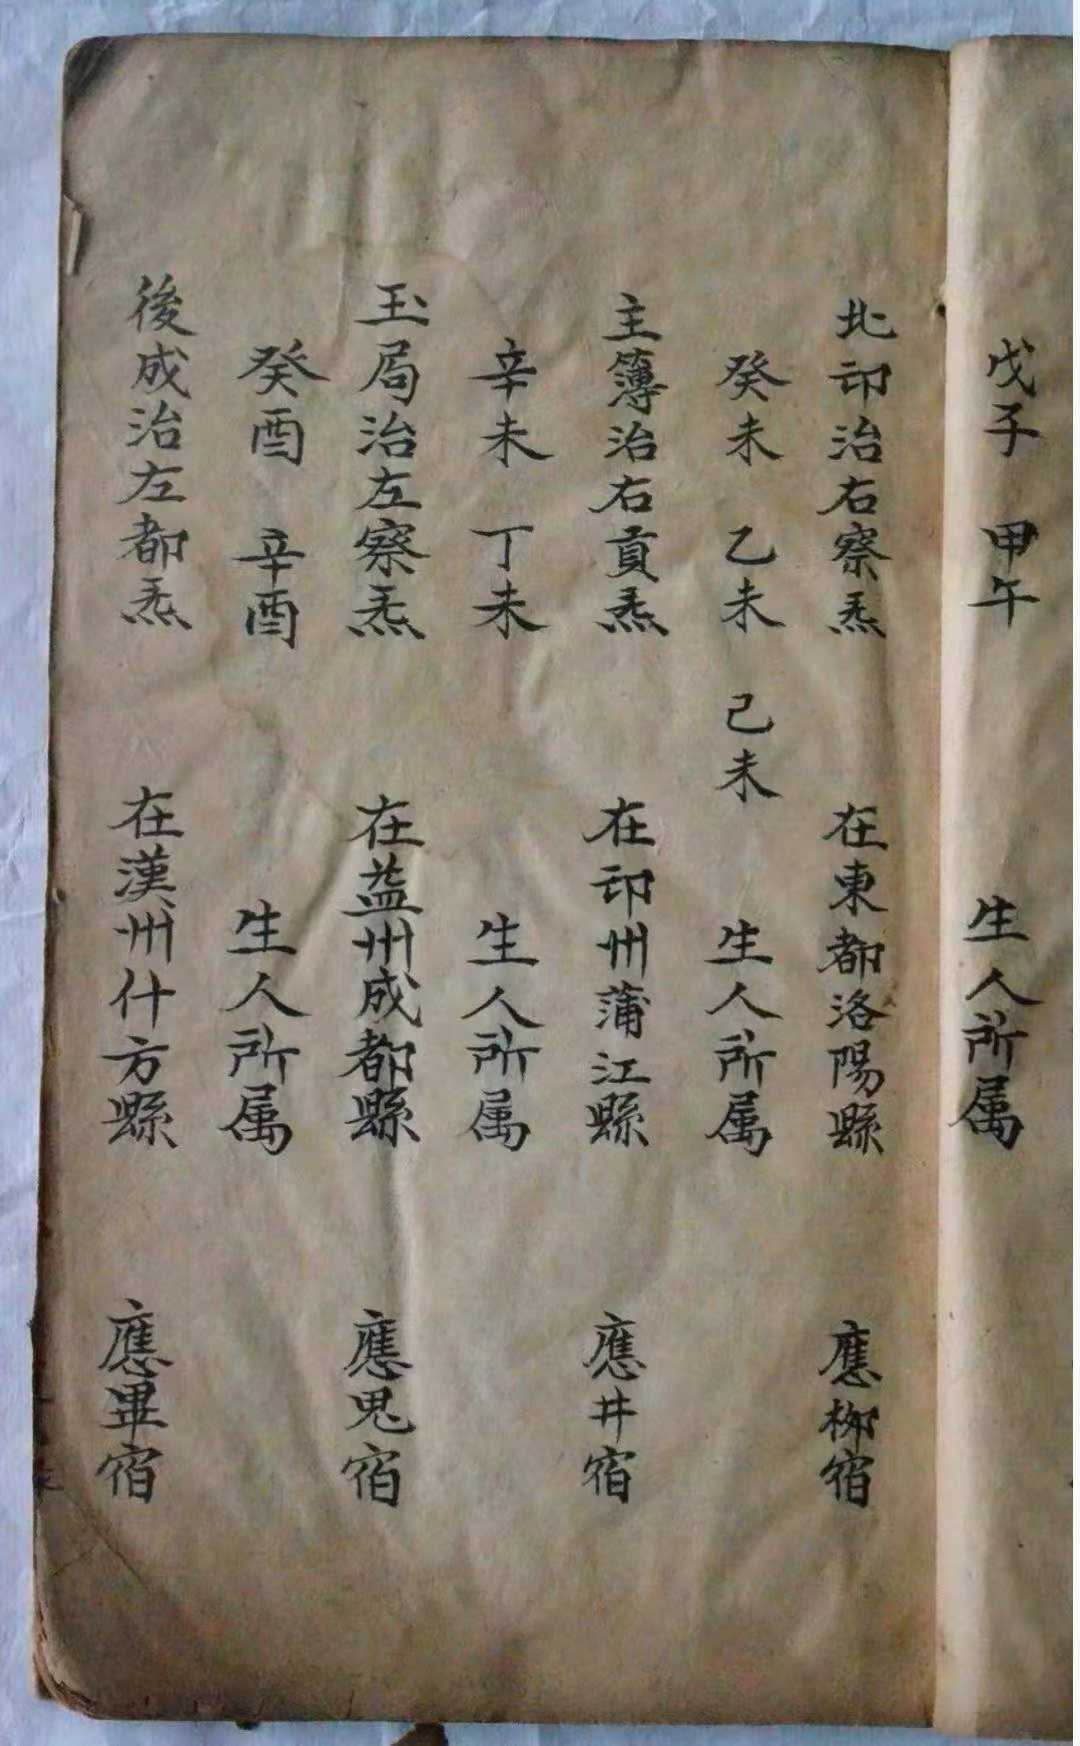 戊子 甲午 生人所属
北卭治右察炁 在東都洛陽縣 應柳宿
癸未 乙未 己未 生人所属
主簿治右貢炁 在卭州蒲江縣 應井宿
辛未 丁未 生人所属
玉局治左察炁 在益州成都縣 應鬼宿
癸酉 辛酉 生人所属
後成治左都炁 在漢州什方縣 應畢宿